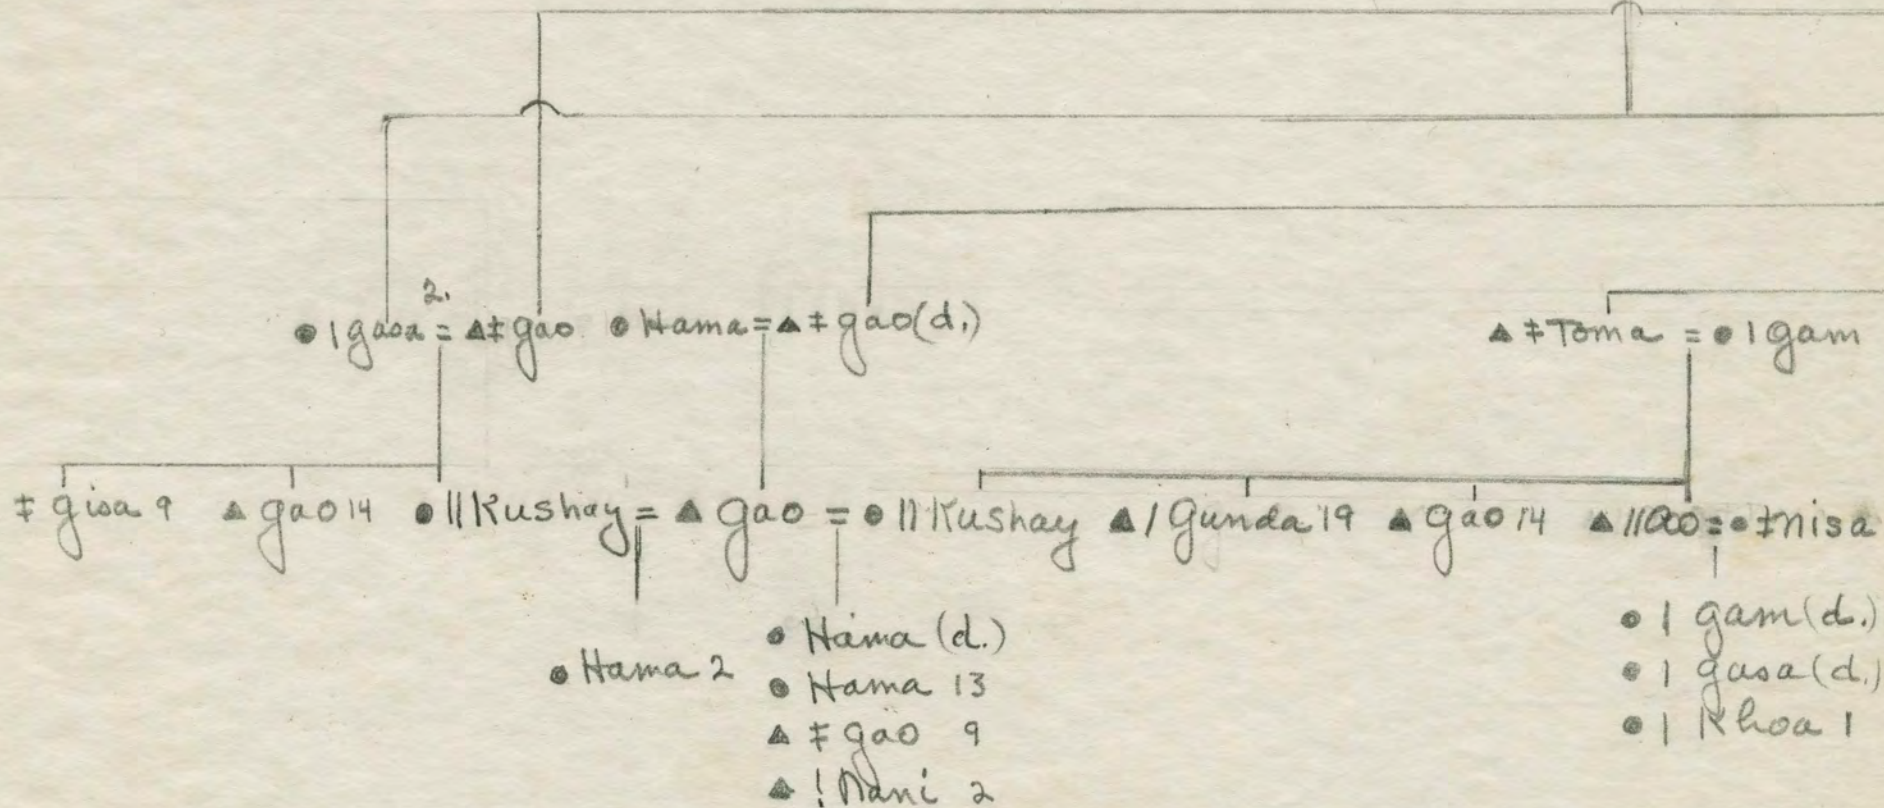 2.
● |gasa = ▲ ‡gao ● Hama = ▲ ‡gao (d.) ▲ ‡Toma = ● |gam
‡gisa 9 ▲ gao 14 ● ||Kushay = ▲ gao = ● ||Kushay ▲ /Gunda 19 ▲ gao 14 ▲ //ao = ● ‡nisa
● Hama 2
● Hama (d.)
● Hama 13
▲ ‡gao 9
▲ !Nani 2
● | gam (d.)
● | gasa (d.)
● | Khoa 1